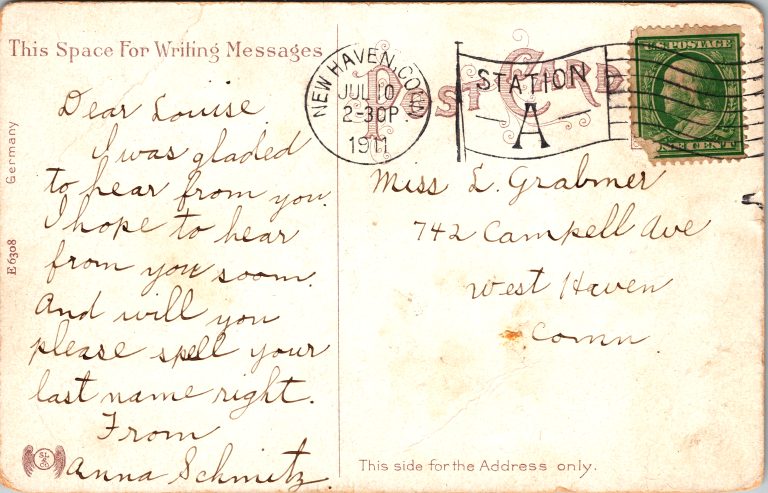 This Space For Writing Messages
Dear Louise
I was gladed
to hear from you.
I hope to hear
from you soom.
And will you
please spell your
last name right.
From
Anna Schmitz.
Germany
E 6308
POST CARD
NEW HAVEN, CONN.
JUL 10
2-30P
1911
STATION
A
U.S. POSTAGE
ONE CENT
Miss L. Grabmer
742 Campell Ave
West Haven
Conn
This side for the Address only.